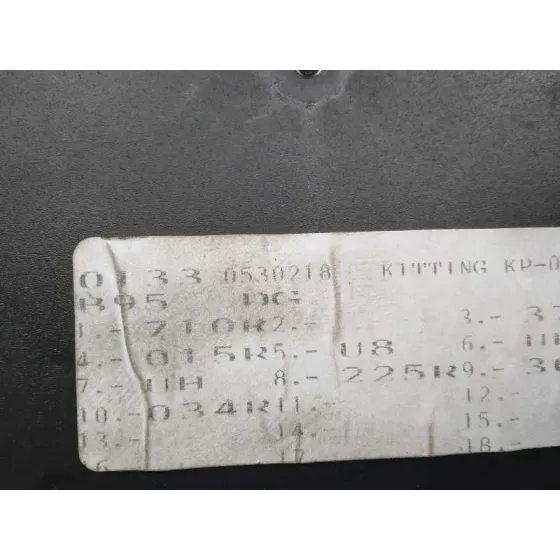 0133 0530218 KITTING KP-0
B95 DG
1.- 710R 2.- 3.- 37
4.- 015R 5.- U8 6.- UH
7.- UH 8.- 225R 9.- 30
10.- 034R 11.- 12.-
13.- 14.- 15.-
16 17 18.-